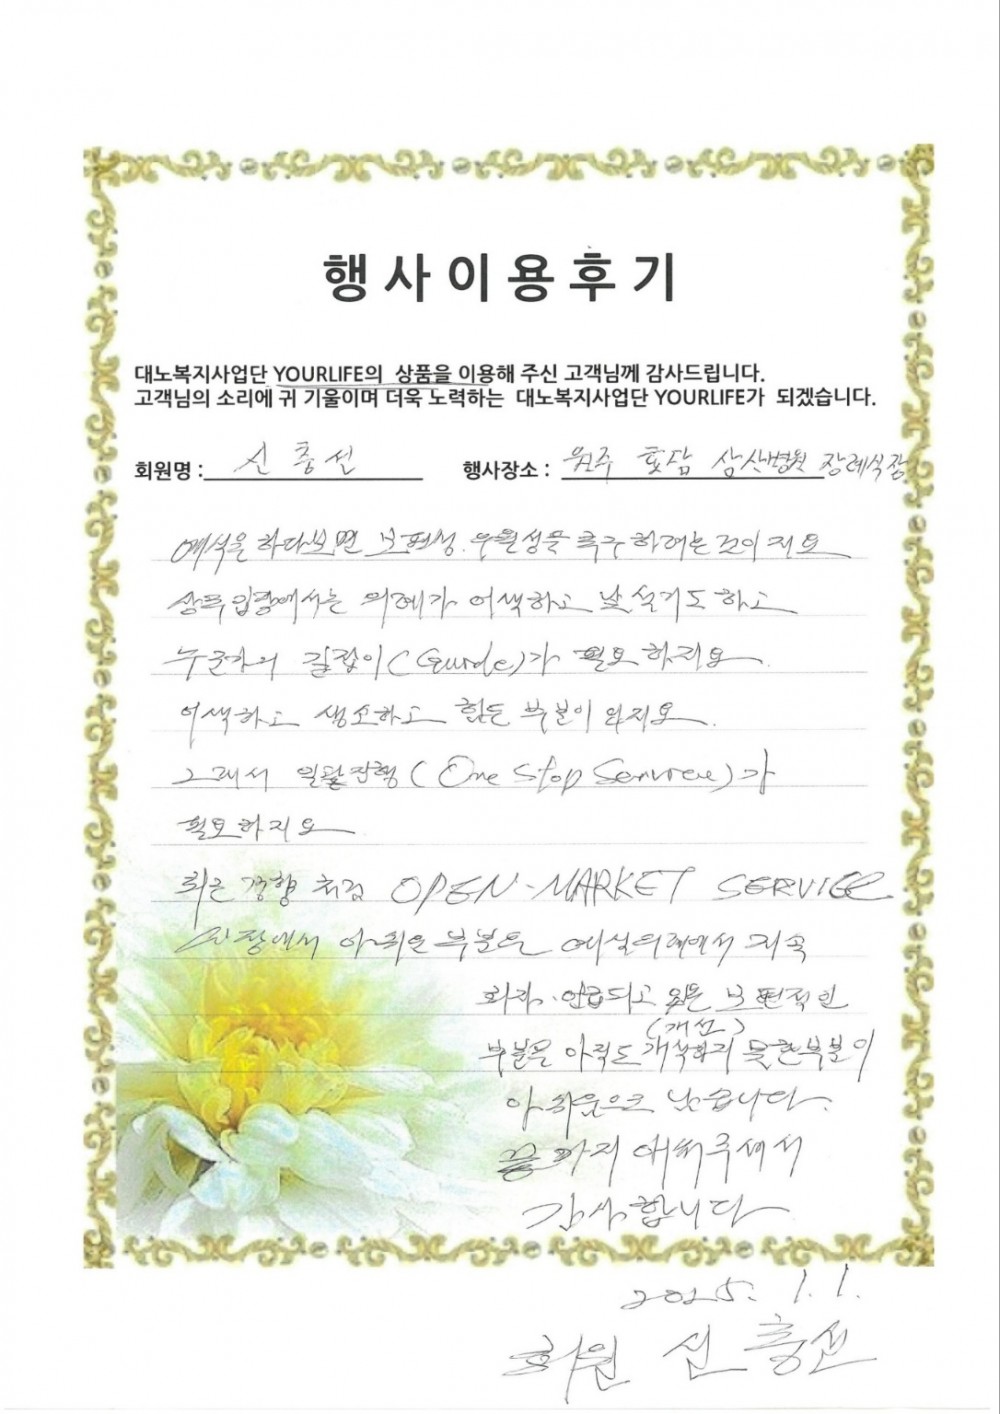 행사이용후기
대노복지사업단 YOURLIFE의 상품을 이용해 주신 고객님께 감사드립니다.
고객님의 소리에 귀 기울이며 더욱 노력하는 대노복지사업단 YOURLIFE가 되겠습니다.
회원명 : 신충선 행사장소 : 원주 효담 삼산병원 장례식장
예식을 하다보면 보편성. 우월성을 추구하려는 것이지요
상주입장에서는 의례가 어색하고 낯설기도 하고
누군가의 길잡이(Guide)가 필요하지요.
어색하고 생소하고 힘든 부분이 와지요.
그래서 일괄진행 (One Stop Service)가
필요하지요
최근 경향처럼 OPEN-MARKET SERVICE
시장에서 아쉬운 부분은 예식의례에서 지속
언급되고 보편적인
(개선)
부분은 아직도 못한부분이
아쉬움으로 남습니다.
끝까지 애써주셔서
감사합니다
2025. 1. 1.
회원 신충선